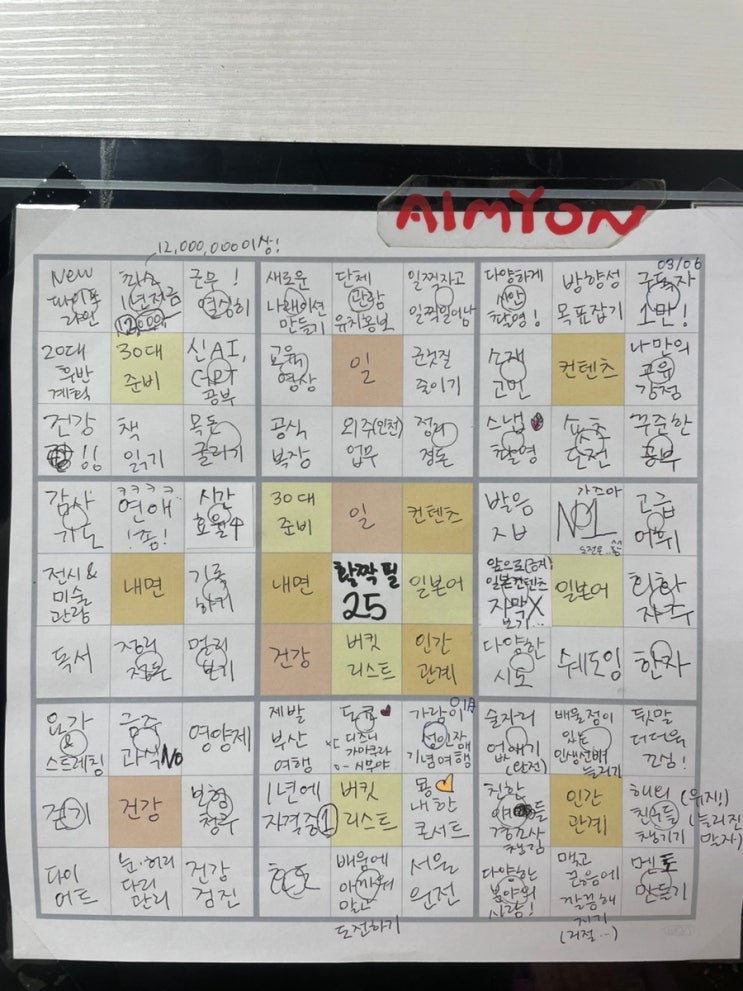 AIMYON
12,000,000이상!
03/06
New
라인
1년저금
근무!
열심히
새로운
나래이션
만들기
단체
관람
유치홍보
일찍자고
일찍일어남
다양하게
촬영!
방향성
목표잡기
구독자
1만!
20대
후반
30대
준비
신AI,
GPT
공부
교육
영상
일
군것질
줄이기
소재
고민
컨텐츠
나만의
교육
강점
건강
!!
책
읽기
목돈
굴리기
공식
복장
외주(인천)
업무
정리
정돈
스냅
촬영
쇼츠
도전
꾸준한
공부
감사
기도
ㅋㅋㅋㅋ
연애
!쫌!
시간
효율
30대
준비
일
컨텐츠
발음
가즈아
NO1
고급
어휘
전시&
미술
관람
내면
기록
하기
내면
활짝 필
25
일본어
일본컨텐츠
자막X
보기..
일본어
회화
자주
독서
정리
정돈
멀리
보기
건강
버킷
리스트
인간
관계
다양한
시도
쉐도잉
한자
요가
&
스트레칭
금주
과식NO
영양제
제발
부산
여행
도쿄
디즈니
가마쿠라
시부야
가람이
성인자매
기념여행
술자리
없애기
(완전)
배울점이
있는
인생선배
늘리기
뒷말
더더욱
조심!
걷기
건강
보험
청구
1년에
자격증1
버킷
리스트
내한
콘서트
친한
경조사
챙김
인간
관계
해외
친구들
챙기기
(유지!)
늘리진
말자)
다이
어트
눈·허리
다리
관리
건강
검진
배움에
아까워
말고
도전하기
서울
원전
다양한
사랑!
맺고
끊음에
깔끔해
지기
(거절..)
멘토
만들기